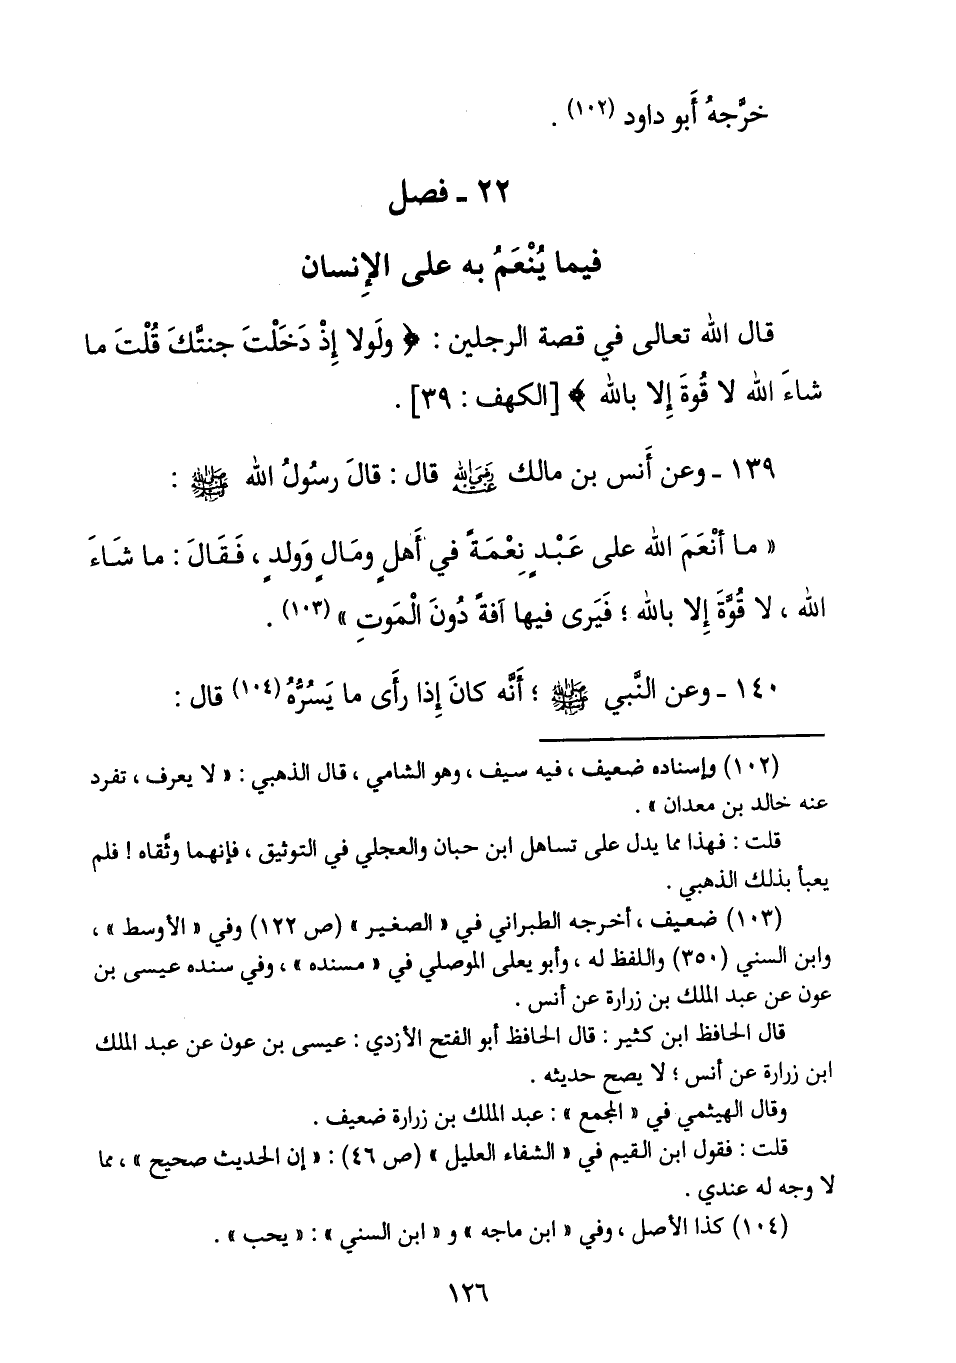 خرَّجهُ أَبو داود (١٠٢) .
٢٢ - فصل
فيما يُنْعَمُ به على الإِنسان
قال الله تعالى في قصة الرجلين : ﴿ ولَولا إِذْ دَخَلْتَ جنتَّكَ قُلْتَ ما
شاءَ الله لا قُوةَ إِلا بالله ﴾ [الكهف : ٣٩] .
١٣٩ - وعن أَنس بن مالك رضي الله عنه قال : قالَ رسُولُ الله ﷺ :
« ما أنْعَمَ الله على عَبْدٍ نِعْمَةً في أَهلٍ ومَالٍ وَولدٍ ، فَقَالَ : ما شَاءَ
الله ، لا قُوَّةَ إِلا بالله ؛ فَيَرى فيها آفةً دُونَ الْمَوتِ » (١٠٣) .
١٤٠ - وعن النَّبي ﷺ ؛ أَنَّه كانَ إِذا رأَى ما يَسُرُّهُ (١٠٤) قال :
(١٠٢) وإسناده ضعيف ، فيه سيف ، وهو الشامي ، قال الذهبي : « لا يعرف ، تفرد
عنه خالد بن معدان » .
قلت : فهذا مما يدل على تساهل ابن حبان والعجلي في التوثيق ، فإنهما وثَّقاه ! فلم
يعبأ بذلك الذهبي .
(١٠٣) ضعيف ، أخرجه الطبراني في « الصغير » (ص ١٢٢) وفي « الأوسط » ،
وابن السني (٣٥٠) واللفظ له ، وأبو يعلى الموصلي في « مسنده » ، وفي سنده عيسى بن
عون عن عبد الملك بن زرارة عن أنس .
قال الحافظ ابن كثير : قال الحافظ أبو الفتح الأزدي : عيسى بن عون عن عبد الملك
ابن زرارة عن أنس ؛ لا يصح حديثه .
وقال الهيثمي في « المجمع » : عبد الملك بن زرارة ضعيف .
قلت : فقول ابن القيم في « الشفاء العليل » (ص ٤٦) : « إن الحديث صحيح » ، مما
لا وجه له عندي .
(١٠٤) كذا الأصل ، وفي « ابن ماجه » و « ابن السني » : « يحب » .
١٢٦